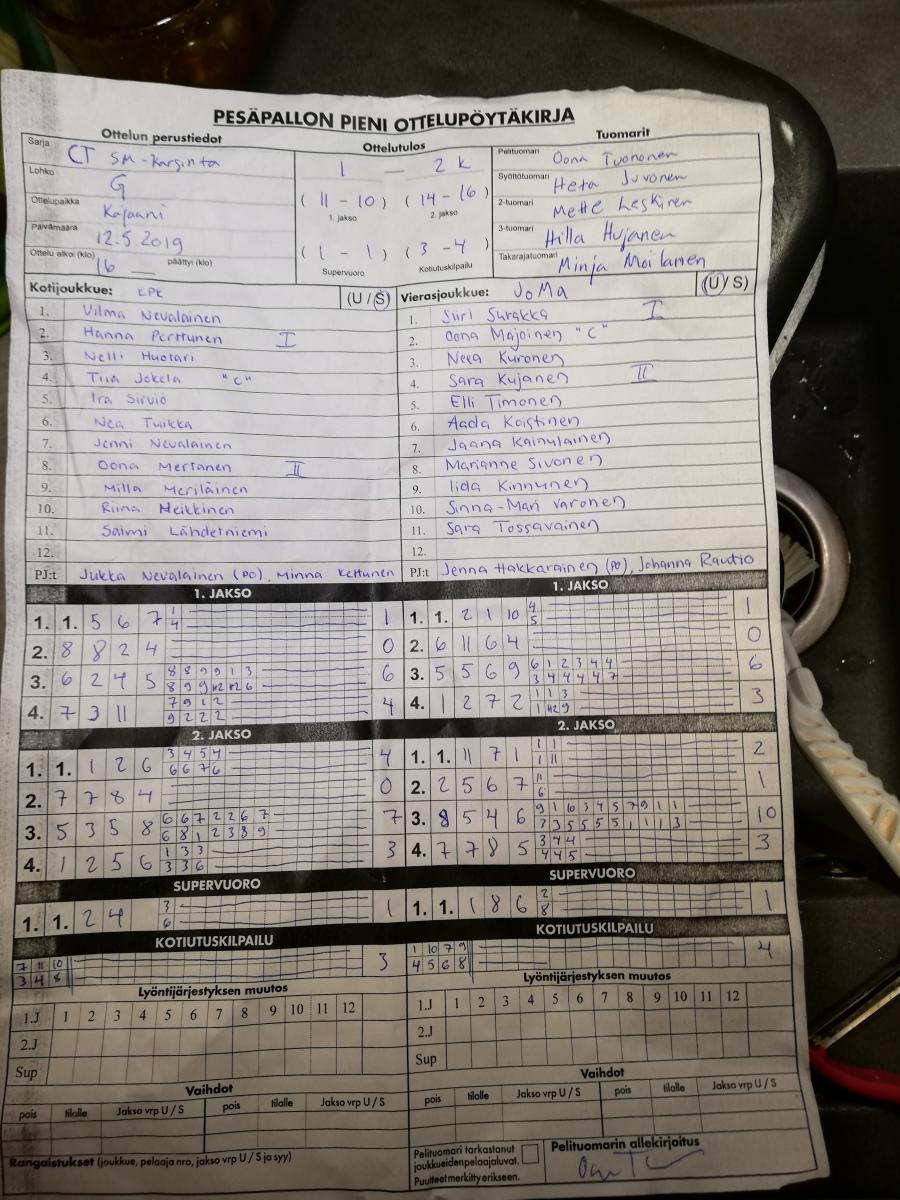 PESÄPALLON PIENI OTTELUPÖYTÄKIRJA
Ottelun perustiedot
Sarja CT SM-Karsinta
Lohko G
Ottelupaikka Kajaani
Päivämäärä 12.5.2019
Ottelu alkoi (klo) 16 päättyi (klo)
Ottelutulos
1 — 2 k
( 11 - 10 ) ( 14 - 16 )
1. jakso 2. jakso
( 1 - 1 ) ( 3 - 4 )
Supervuoro Kotiutuskilpailu
Tuomarit
Pelituomari Oona Tuononen
Syöttötuomari Heta Juvonen
2-tuomari Mette Leskinen
3-tuomari Hilla Hujanen
Takarajatuomari Minja Moilanen
Kotijoukkue: KPK (U / S)
1. Vilma Nevalainen
2. Hanna Perttunen I
3. Nelli Huotari
4. Tiia Jokela "C"
5. Ira Sirviö
6. Nea Tuikka
7. Jenni Nevalainen
8. Oona Mertanen II
9. Milla Meriläinen
10. Riina Heikkinen
11. Saimi Lähdetniemi
12.
PJ:t Jukka Nevalainen (PO), Minna Kettunen
Vierasjoukkue: JoMa (U / S)
1. Siiri Surakka I
2. Oona Majoinen "C"
3. Neea Kuronen
4. Sara Kujanen II
5. Elli Timonen
6. Aada Koistinen
7. Jaana Kainulainen
8. Marianne Sivonen
9. Iida Kinnunen
10. Sinna-Mari Varonen
11. Sara Tossavainen
12.
PJ:t Jenna Hakkarainen (PO), Johanna Rautio
1. JAKSO
1. 1. 5 6 7 1 1
4
2. 8 8 2 4 0
3. 6 2 4 5 8 8 9 9 1 3 6
8 9 9 H2 H2 6
4. 7 3 11 7 9 1 2 4
9 2 2 2
1. JAKSO
1. 1. 2 1 10 4 1
5
2. 6 11 6 4 0
3. 5 5 6 9 6 1 2 3 4 4 6
3 4 4 4 4 7
4. 1 2 7 2 1 1 3 3
1 H2 9
2. JAKSO
1. 1. 1 2 6 3 4 5 4 4
6 6 7 6
2. 7 7 8 4 0
3. 5 3 5 8 6 6 7 2 2 6 7 7
6 8 1 2 3 8 9
4. 1 2 5 6 1 3 3 3
3 3 6
2. JAKSO
1. 1. 11 7 1 1 1 2
1 11
2. 2 5 6 7 11 1
6
3. 8 5 4 6 9 1 10 3 4 5 7 9 1 1 10
3 3 5 5 5 5 1 1 1 3
4. 7 7 8 5 3 4 4 3
4 4 5
SUPERVUORO
1. 1. 2 4 3 1
6
SUPERVUORO
1. 1. 1 8 6 2 1
8
KOTIUTUSKILPAILU
7 11 10 3
3 4 8
KOTIUTUSKILPAILU
1 10 7 9 4
4 5 6 8
Lyöntijärjestyksen muutos
1.J 1 2 3 4 5 6 7 8 9 10 11 12
2.J
Sup
Lyöntijärjestyksen muutos
1.J 1 2 3 4 5 6 7 8 9 10 11 12
2.J
Sup
Vaihdot
pois tilalle Jakso vrp U / S pois tilalle Jakso vrp U / S
Vaihdot
pois tilalle Jakso vrp U / S pois tilalle Jakso vrp U / S
Rangaistukset (joukkue, pelaaja nro, jakso vrp U / S ja syy)
Pelituomari tarkastanut
joukkueidenpelaajaluvat.
Puutteet merkitty erikseen.
Pelituomarin allekirjoitus